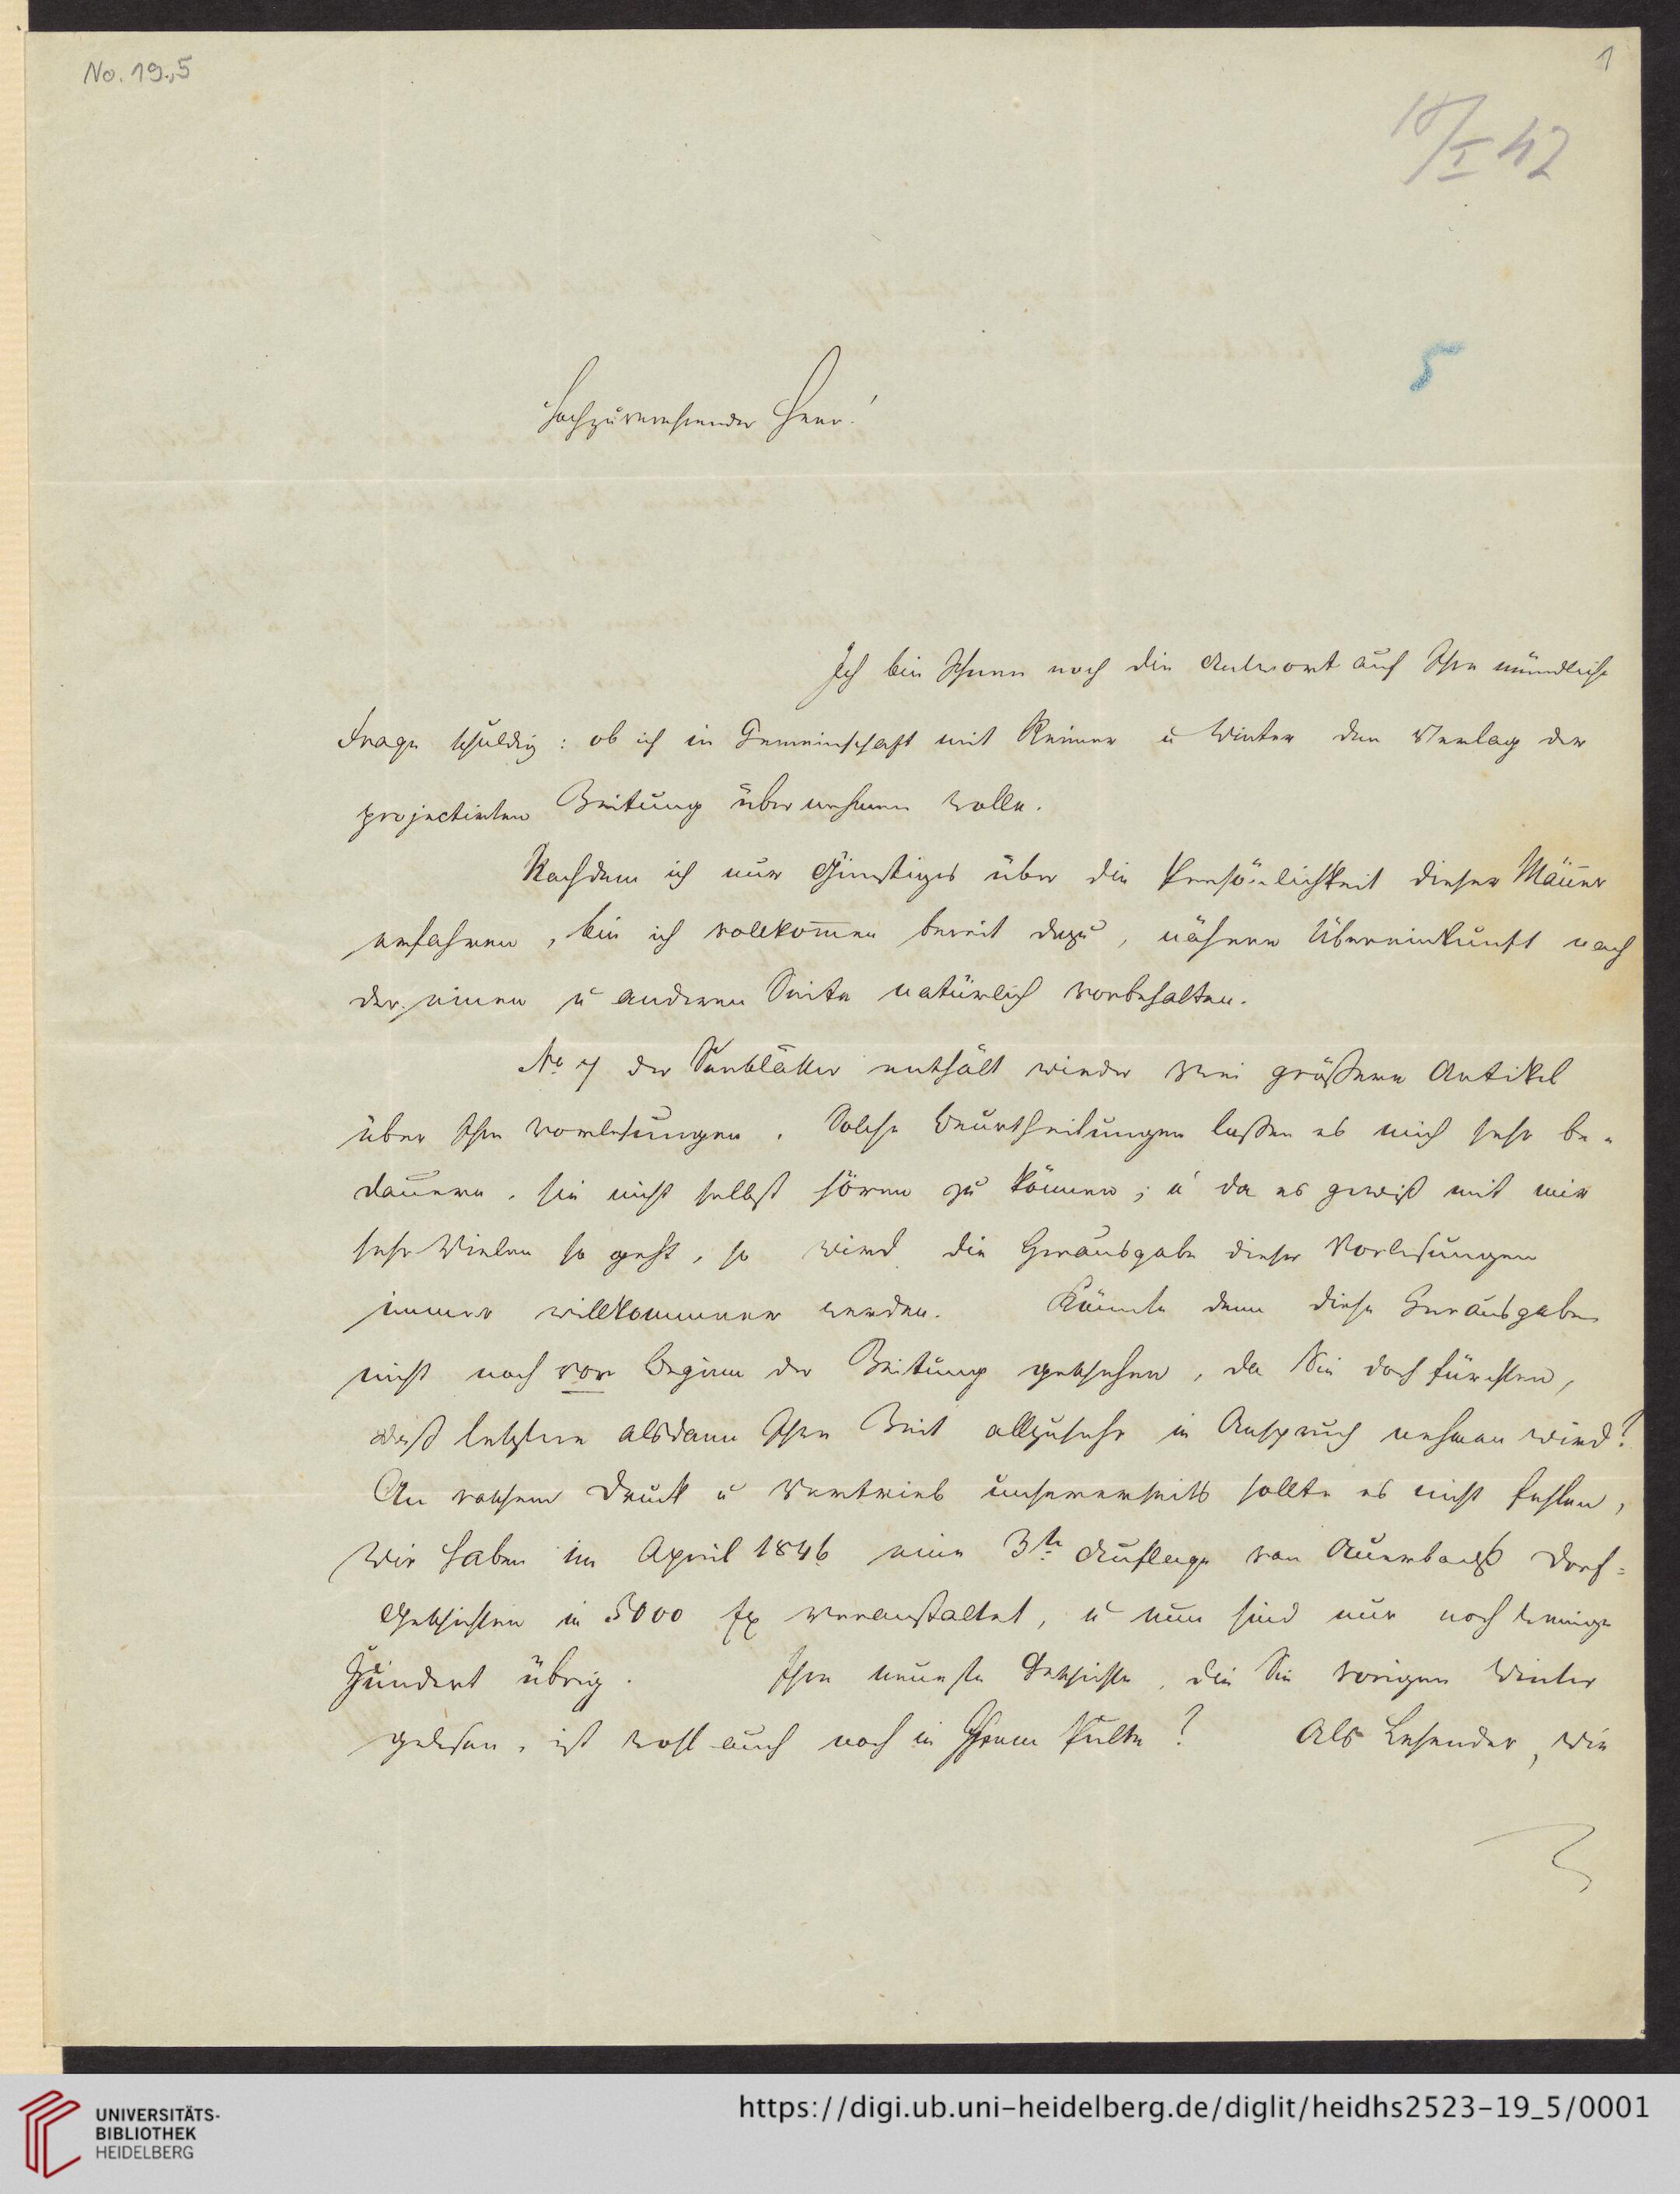 No. 19.,5
1
10/I 42
5
Hochzuverehrender Herr!
Ich bin Ihnen noch die Antwort auf Ihre mündliche
Frage schuldig: ob ich in Gemeinschaft mit Reimer u Winter den Verlag der
projectirten Zeitung übernehmen wolle.
Nachdem ich nur Günstiges über die Persönlichkeit dieser Männer
erfahren, bin ich vollkommen bereit dazu, nähere Übereinkunft nach
der einen u anderen Seite natürlich vorbehalten.
No 7 der Seeblätter enthält wieder zwei größere Artikel
über Ihre Vorlesungen. Solche Beurtheilungen lassen es mich sehr be-
dauern, sie nicht selbst hören zu können; u da es gewiß mit mir
sehr Vielen so geht, so wird die Herausgabe dieser Vorlesungen
immer willkommener werden. Könnte denn diese Herausgabe
nicht noch vor Beginn der Zeitung geschehen, da Sie doch fürchten,
daß letztere alsdann Ihre Zeit allzusehr in Anspruch nehmen wird?
An raschem Druck u Vertrieb unsererseits sollte es nicht fehlen,
Wir haben im April 1846 eine 3te Auflage von Auerbachs Dorf-
geschichten in 5000 Ex veranstaltet, u nun sind nur noch wenige
Hundert übrig. Ihre neueste Geschichte, die Sie vorigen Winter
gelesen, ist wohl auch noch in Ihrem Pulte? Als Lesender, wie
UNIVERSITÄTS-
BIBLIOTHEK
HEIDELBERG
https://digi.ub.uni-heidelberg.de/diglit/heidhs2523-19_5/0001